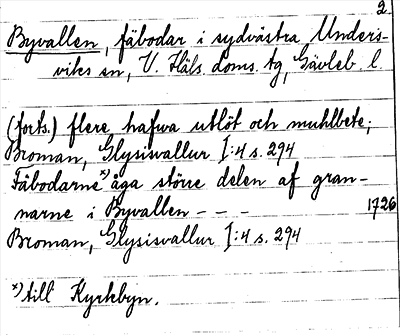 2.
Byvallen, fäbodar i sydvästra Unders-
viks sn, V. Häls. doms. tg, Gävleb. l.
(forts.) flere hafwa utlöt och muhlbete;
Broman, Glysisvallur I:4 s. 294
Fäbodarne x) äga större delen af gran-
narne i Byvallen - - - 1726
Broman, Glysisvallur I:4 s. 294
x) till Kyrkbyn.